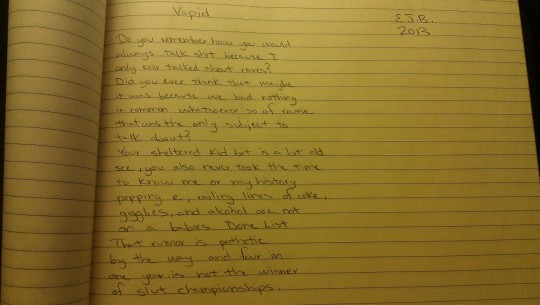 Vapid
E.J.B.
2013
Do you remember how you would
always talk shit because I
only ever talked about raves?
Did you ever think that maybe
it was because we had nothing
in common whatsoever so of course
that was the only subject to
talk about?
Your sheltered kid bit is a bit old
see, you also never took the time
to know me or my history
popping e, railing lines of coke,
gigglies, and alcohol are not
on a babies Done List
That rumor is pathetic
by the way and four in
one year is not the winner
of slut championships.